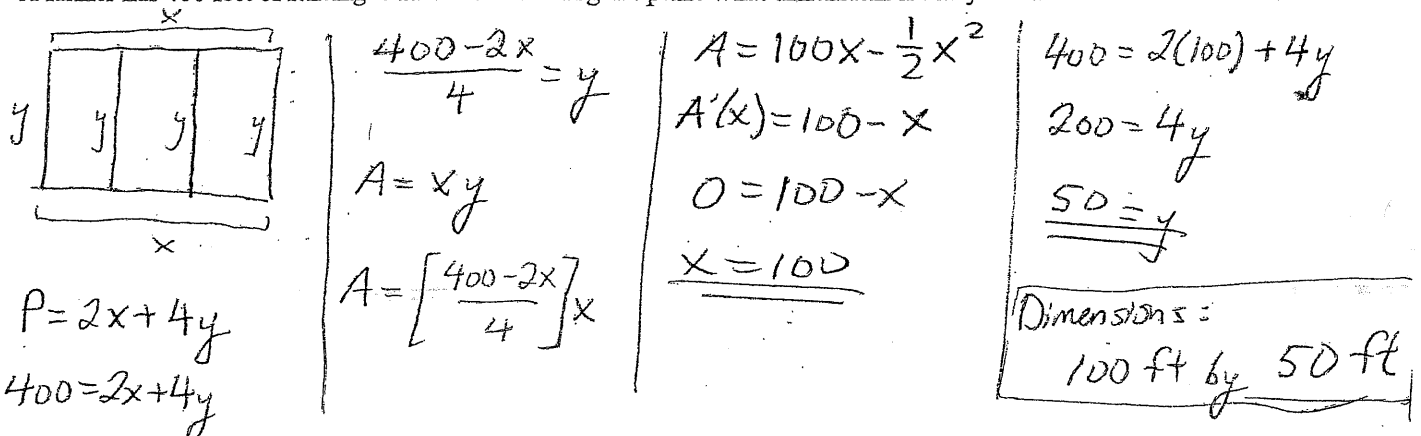 x
y y y y
x
P = 2x + 4y
400 = 2x + 4y
(400 - 2x)/4 = y
A = xy
A = [(400 - 2x)/4]x
A = 100x - 1/2 x²
A'(x) = 100 - x
0 = 100 - x
x = 100
400 = 2(100) + 4y
200 = 4y
50 = y
Dimensions:
100 ft by 50 ft